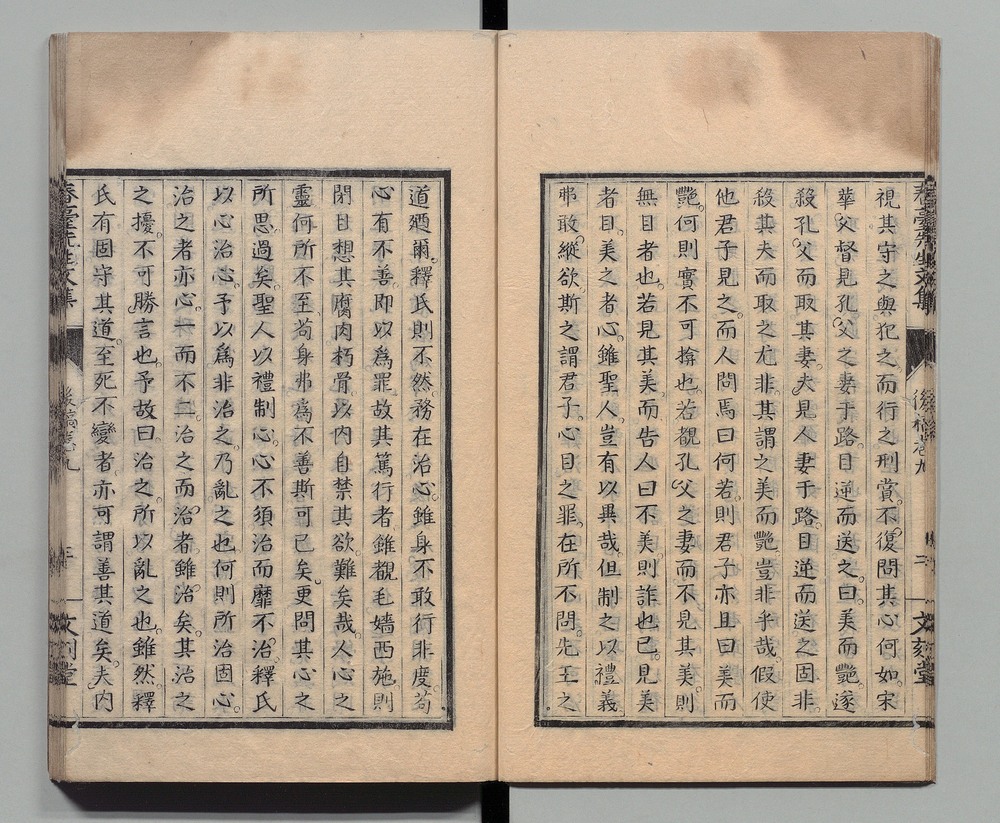 視其守之與犯之而行之刑賞不復問其心何如宋
華父督見孔父之妻于路目逆而送之曰美而艷遂
殺孔父而取其妻夫見人妻于路目逆而送之固非
殺其夫而取之尤非其謂之美而艷豈非乎哉假使
他君子見之而人問焉曰何若則君子亦且曰美而
艷何則實不可揜也若觀孔父之妻而不見其美則
無目者也若見其美而告人曰不美則詐也已見美
者目美之者心雖聖人豈有以異哉但制之以禮義
弗敢縱欲斯之謂君子心目之罪在所不問先王之
道廼爾釋氏則不然務在治心雖身不敢行非度苟
心有不善即以為罪故其篤行者雖觀毛嬙西施則
閉目想其腐肉朽骨以内自禁其欲難矣哉人心之
靈何所不至苟身弗為不善斯可已矣更問其心之
所思過矣聖人以禮制心心不須治而靡不治釋氏
以心治心予以為非治之乃亂之也何則所治固心
治之者亦心一而不二治之而治者雖治矣其治之
之擾不可勝言也予故曰治之所以亂之也雖然釋
氏有固守其道至死不變者亦可謂善其道矣夫内
春臺先生文集
後稿卷九
三
文刻堂